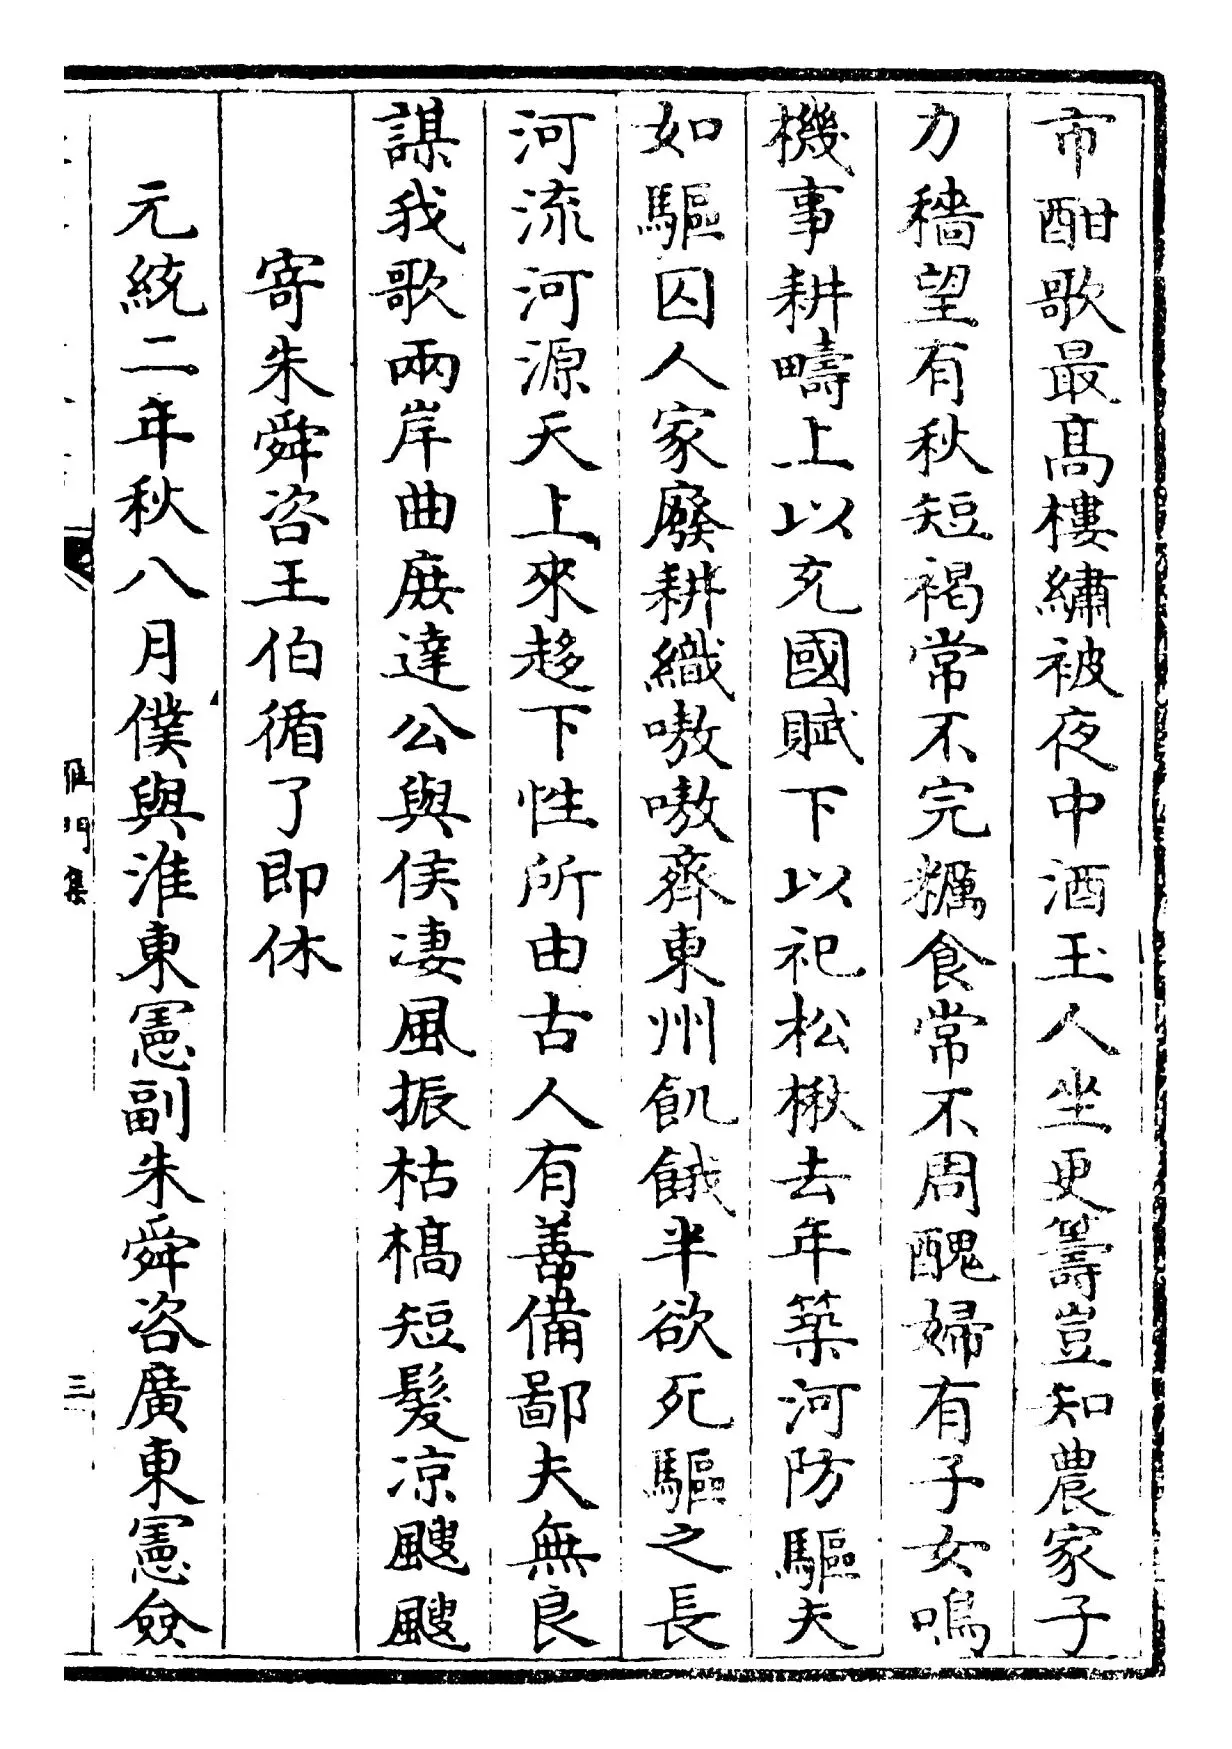 市酣歌最髙樓繡被夜中酒玉人坐更籌豈知農家子
力穡望有秋短褐常不完糲食常不周醜婦有子女鳴
機事耕疇上以充國賦下以祀松楸去年築河防驅夫
如驅囚人家廢耕織嗷嗷齊東州飢餓半欲死驅之長
河流河源天上來趍下性所由古人有善備鄙夫無良
謀我歌兩岸曲庻達公與侯凄風振枯槁短髮凉颼颼
寄朱舜咨王伯循了即休
元統二年秋八月僕與淮東憲副朱舜咨廣東憲僉
雁門集
三